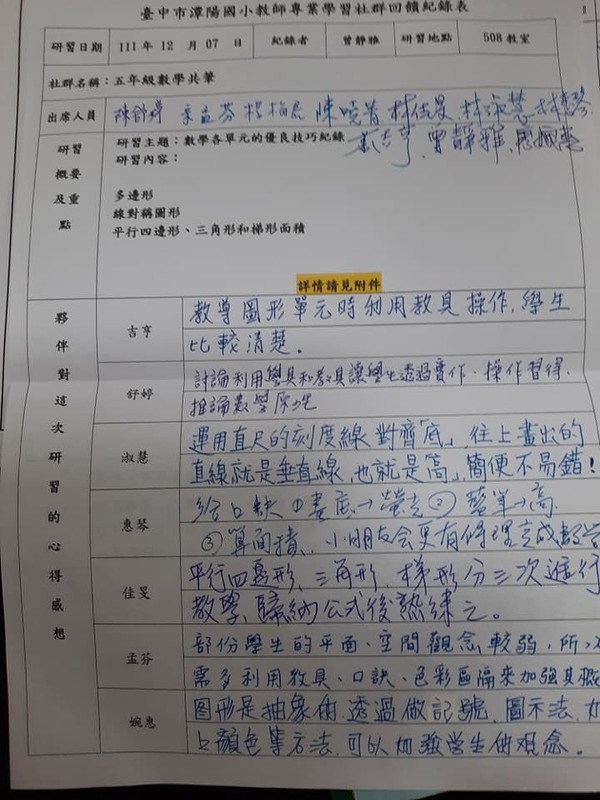 臺中市潭陽國小教師專業學習社群回饋紀錄表
研習日期 111年12月07日 紀錄者 曾靜雅 研習地點 508教室
社群名稱：五年級數學共筆
出席人員 陳舒婷 宋孟芬 陳曉菁 林佳旻 林淑慧
曾靜雅
研習概要及重點
研習主題：數學各單元的優良技巧紀錄
研習內容：
多邊形
線對稱圖形
平行四邊形、三角形和梯形面積
詳情請見附件
夥伴對這次研習的心得感想
吉亨
教導圖形單元時利用教具操作，學生
比較清楚。
舒婷
討論利用學具和教具讓學生透過實作、操作習得、
推論數學原
淑慧
運用直尺的刻度線對齊「底」往上畫出的
直線就是垂直線，也就是「高」，簡便不易錯！
惠琴
給口訣①畫底→螢光②→高
③算面積，小朋友會更有條理完成
佳旻
平行四邊形、三角形、梯形分三次進行
教學，歸納公式後熟練之。
孟芬
部份學生的平面、空間觀念較弱，所以
需多利用教具、口訣、色彩區隔來加強其概
婉惠
圖形是抽象的，透過做記號、圖示法、加
上顏色等方法，可以加強學生的觀念。